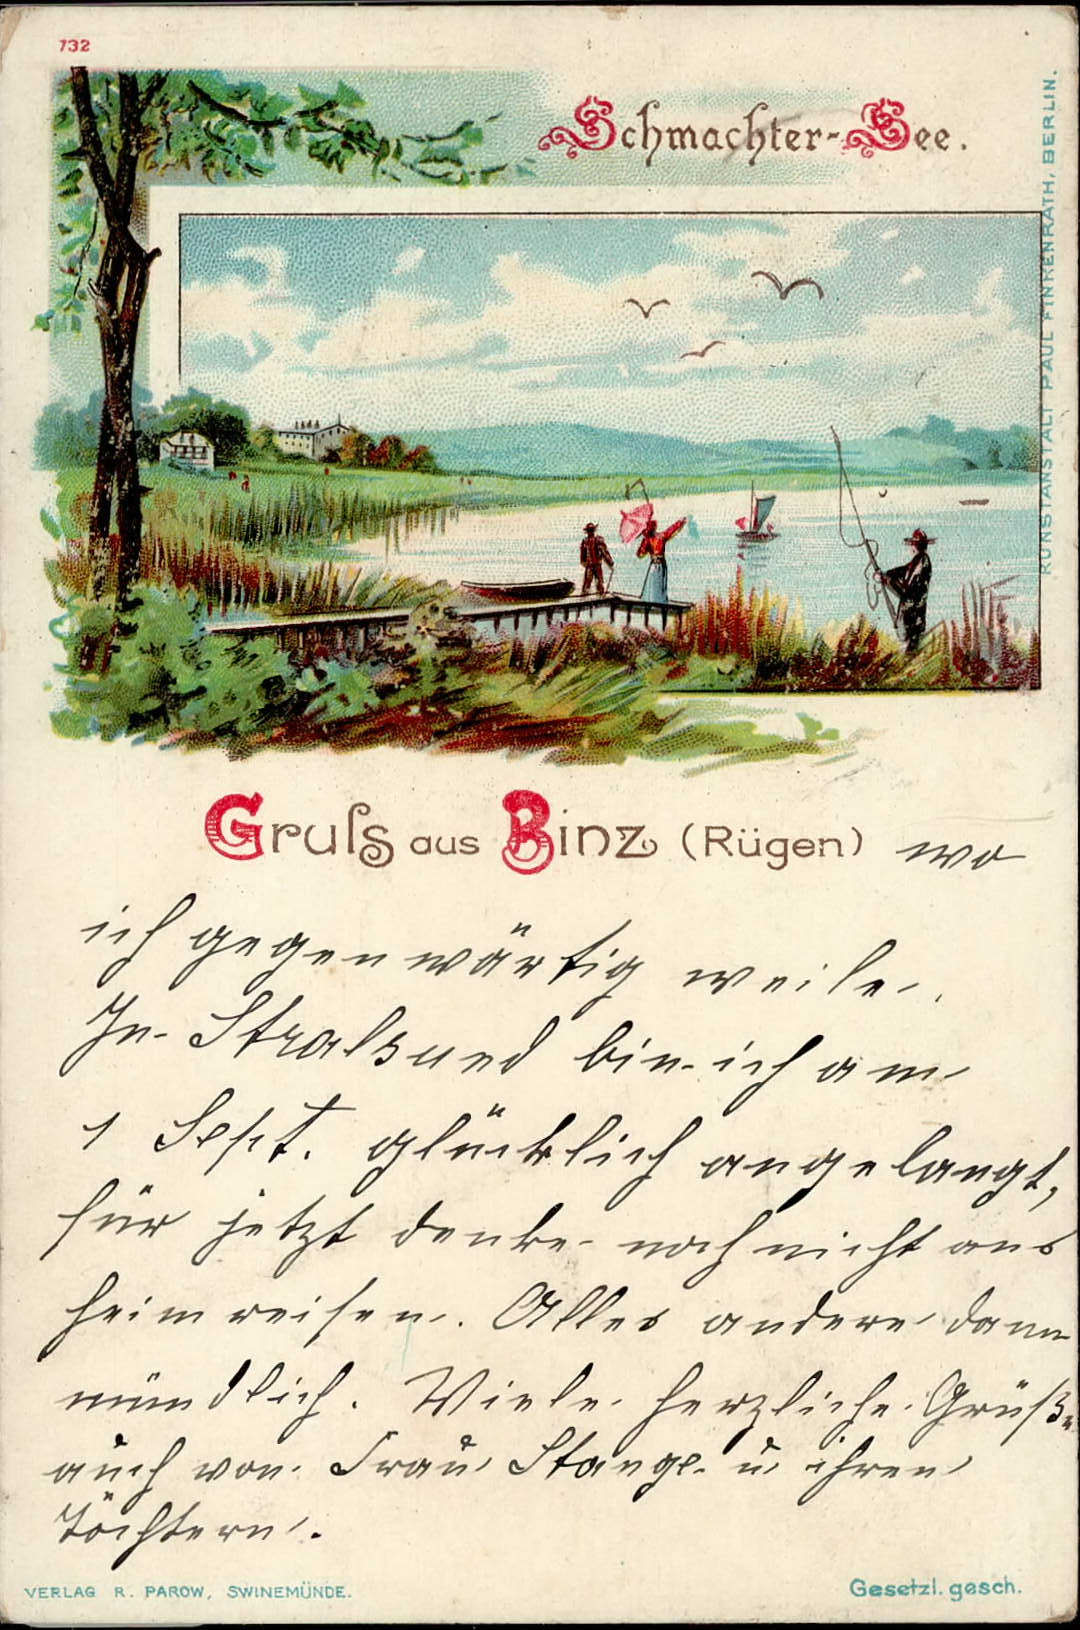 732
Schmachter-See.
KUNSTANSTALT PAUL FINKENRATH, BERLIN.
Gruſs aus Binz (Rügen) wo
ich gegenwärtig weile.
In Stralsund bin ich am
1 Sept. glücklich angelangt,
für jetzt denke noch nicht ans
heimreisen. Alles andere dann
mündlich. Viele herzliche Grüße
auch von Frau Stange u. ihren
Töchtern.
VERLAG R. PAROW, SWINEMÜNDE.
Gesetzl. gesch.